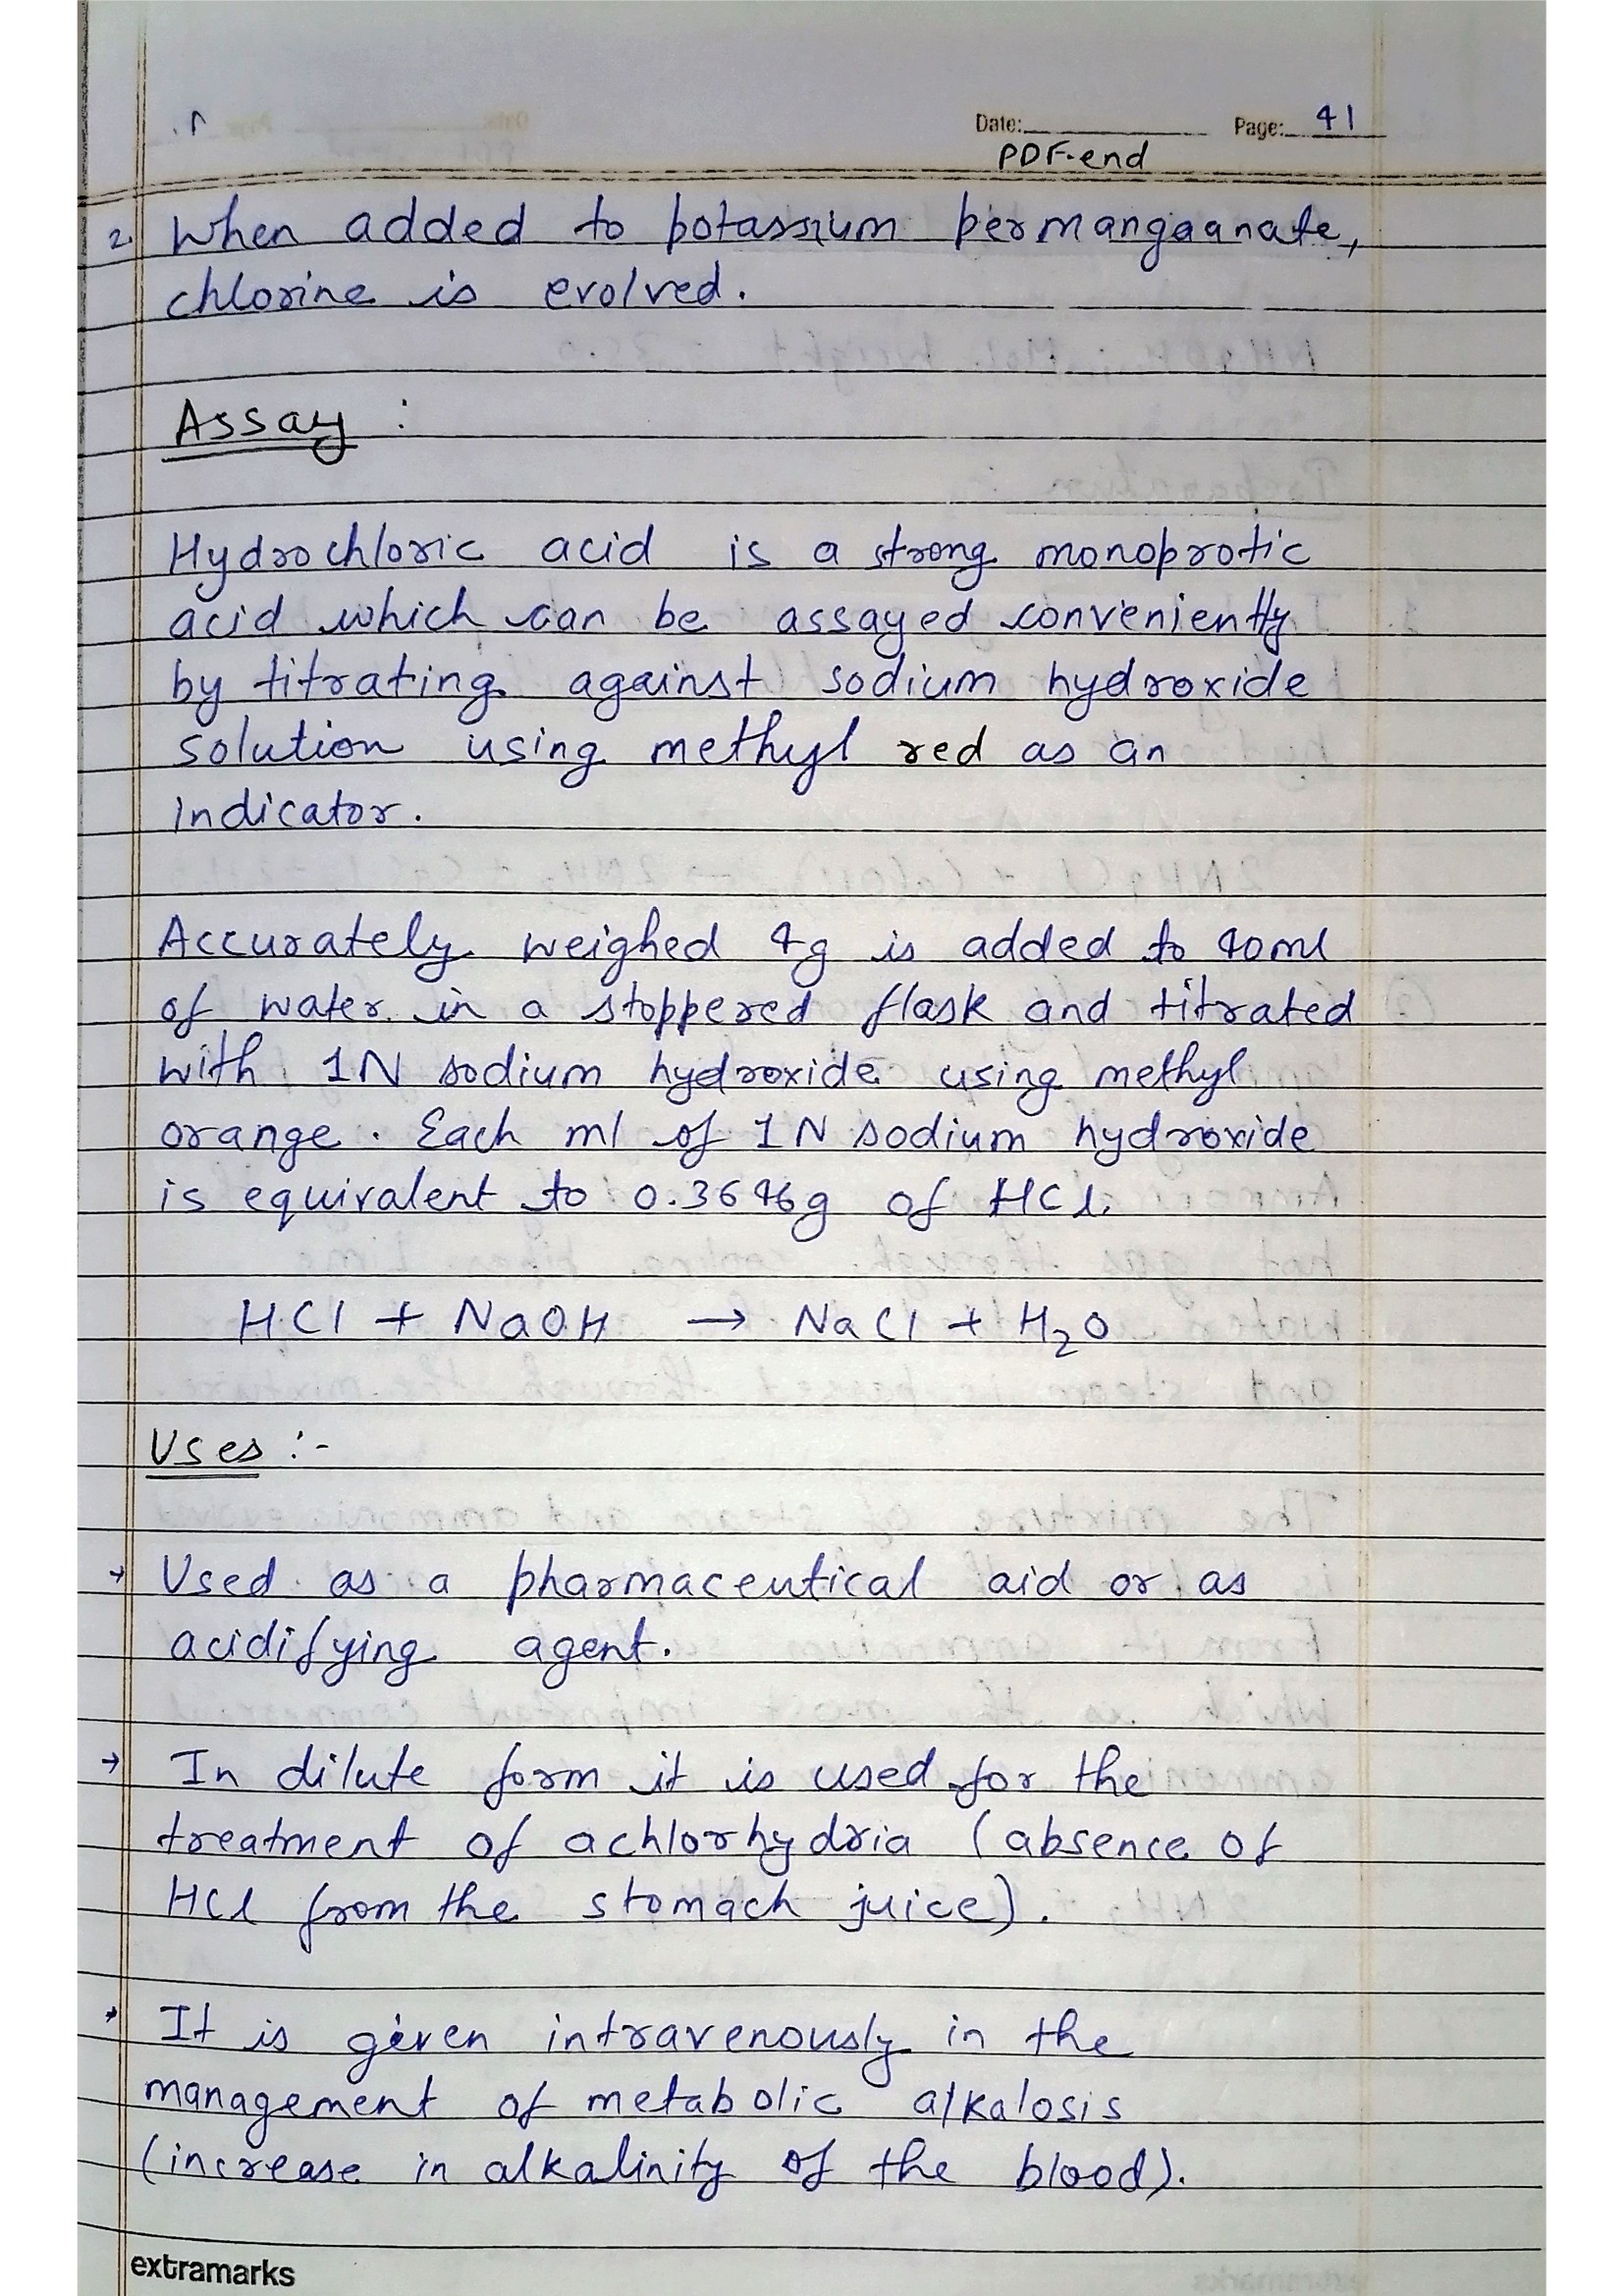 Date: Page: 41
PDF-end
2. When added to potassium permangaanate,
chlorine is evolved.
Assay :
Hydrochloric acid is a strong monoprotic
acid which can be assayed conveniently
by titrating against sodium hydroxide
solution using methyl red as an
indicator.
Accurately weighed 4g is added to 40ml
of water in a stoppered flask and titrated
with 1N sodium hydroxide using methyl
orange. Each ml of 1N sodium hydroxide
is equivalent to 0.3646g of HCl.
HCl + NaOH → NaCl + H₂O
Uses :-
→ Used as a pharmaceutical aid or as
acidifying agent.
→ In dilute form it is used for the
treatment of achlorhydria (absence of
HCl from the stomach juice).
→ It is given intravenously in the
management of metabolic alkalosis
(increase in alkalinity of the blood).
extramarks